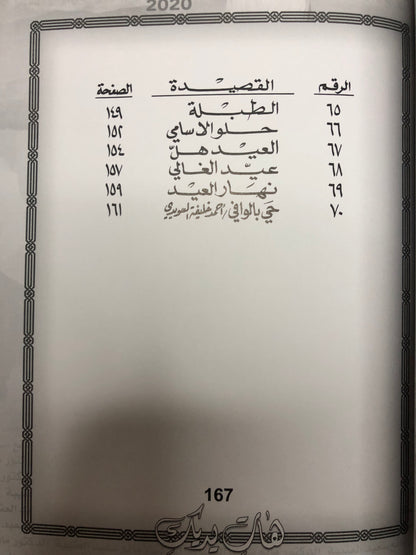 2020
الرقم القصيدة الصفحة
٦٥ الطبلة ١٤٩
٦٦ حلو الاسامي ١٥٢
٦٧ العيد هلّ ١٥٤
٦٨ عيد الغالي ١٥٧
٦٩ نهار العيد ١٥٩
٧٠ حيّ بالوافي / أحمد خليفة السويدي ١٦١
167